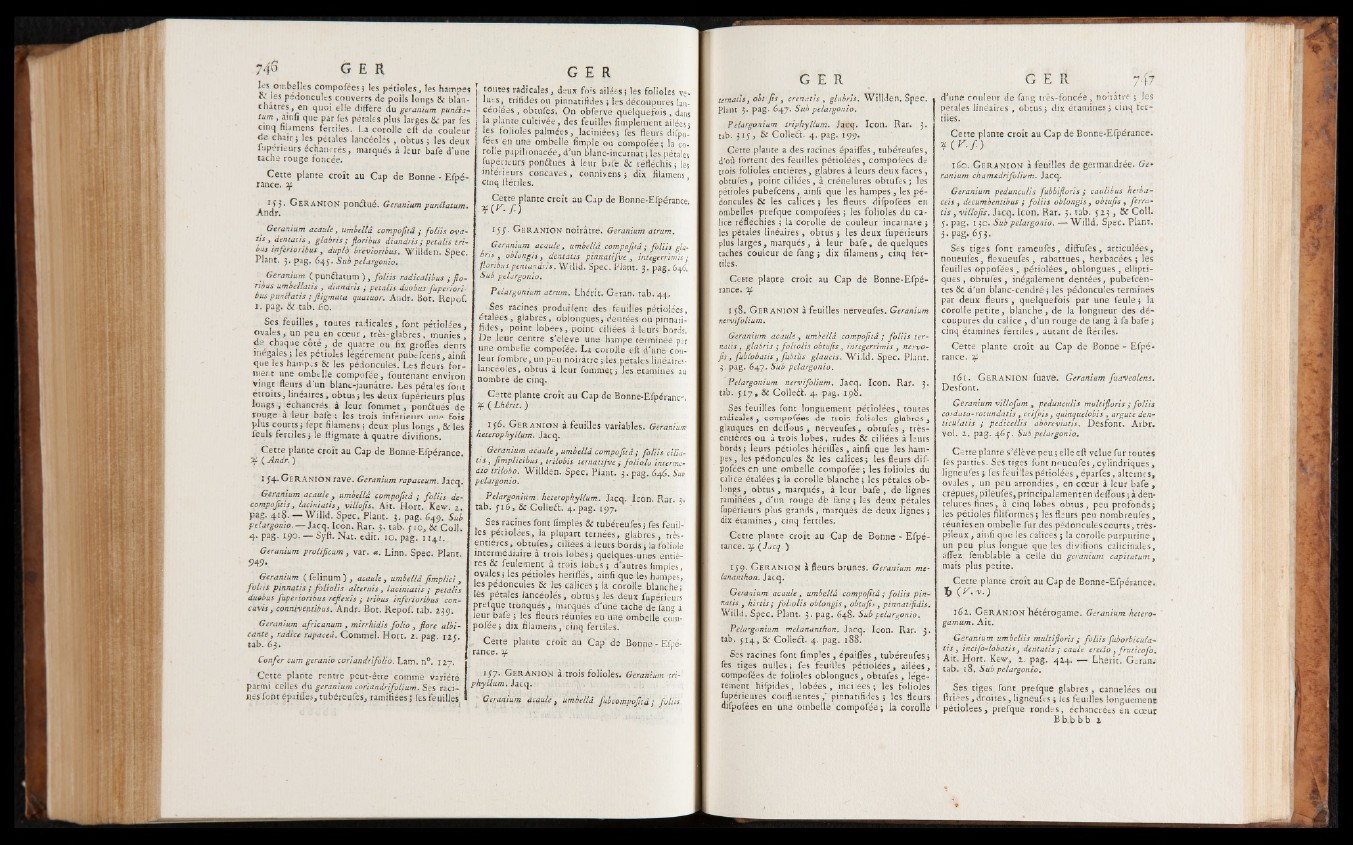 746 G E R
les ombelles composées ; les pétioles, les hampes
& les pédoncules couverts de poils longs & blan-
châtres, en quoi elle diffère du geranium puncta-
tum, ainsi que par ses pétales plus larges & par ses
cinq filamens fertiles. La corolle est de couleur
de chair ; les pétales lancéolés, obtus ; les deux
supérieurs échancrés, marqués à leur base d'une
tache rouge foncée.
Cette plante croît au Cap de Bonne-Espé-
rance. ♃
153. GERANION ponctué. Geranium punctatum.
Andr.
Geranium acaule, umbellâ compositâ ; foliis ova-
tis, dentatis, glabris ; floribus diandris ; petalis tri-
bus inferioribus, duplò brevioribus. Willden. Spec.
Plant. 3. pag. 645. Sub pelargonio.
Geranium (punctatum), foliis radicalibus ; flo-
ribus umbellatis, diandris ; petalis duobus superiori-
bus punctatis ; stigmata quatuor. Andr. Bot. Repos.
1. pag. & tab. 60.
Ses feuilles, toutes radicales, sont pétiolées,
ovales, un peu en cœur, très-glabres, munies,
de chaque côté, de quatre ou six grosses dents
inégales ; les pétioles légérement pubescens, ainsi
que les hampes & les pédoncules. Les fleurs for-
ment une ombelle composée, soutenant environ
vingt fleurs d'un blanc-jaunâtre. Les pétales sont
étroits, linéaires, obtus ; les deux supérieurs plus
longs, échancrés à leur sommet, ponctués de
rouge à leur base ; les trois inférieurs une fois
plus courts ; sept filamens ; deux plus longs, & les
seuls fertiles ; le stigmate à quatre divisions.
Cette plante croît au Cap de Bonne-Espérance.
♃ ( Andr. )
154. GERANION rave. Geranium rapaceum. Jacq.
Geranium acaule, umbellâ compositâ ; foliis de-
compositis, laciniatis, villosis. Ait. Hort. Kew. 2.
pag. 418. — Willd. Spec. Plant. 3. pag. 649. Sub
pelargonio. — Jacq. Icon. Rar. 3. tab. 510, & Coll.
4. pag. 190. — Syst. Nat. edit. 10. pag. 1141.
Geranium prolificum, var. α. Linn. Spec. Plant.
949.
Geranium (selinum), acaule, umbellâ simplici,
foliis pinnatis ; foliolis alternis, laciniatis ; petalis
duobus superioribus reflexis ; tribus inferioribus con-
cavis, conniventibus. Andr. Bot. Repos. tab. 239.
Geranium africanum, mirrhidis folio, flore albi-
cante, radice rapaceâ. Commel. Hort. 2. pag. 125.
tab. 63.
Confer cum geranio coriandrifolio. Lam. n°. 127.
Cette plante rentre peut-être comme variété
parmi celles du geranium coriandrifolium. Ses raci-
nes sont épaisses, tubéreuses, ramifiées ; les feuilles
G E R
toutes radicales, deux fois ailées ; les folioles ve-
lues, trifides ou pinnatifides ; les découpures lan-
céolées, obtuses. On observe quelquefois, dans
la plante cultivée, des feuilles simplement ailées ;
les folioles palmées, laciniées ; ses fleurs dispo-
sées en une ombelle simple ou composée ; la co-
rolle papilionacée, d'un blanc-incarnat ; les pétales
supérieurs ponctués à leur base & réfléchis ; les
inférieurs concaves, connivens ; dix filamens,
cinq stériles.
Cette plante croît au Cap de Bonne-Espérance.
♃ (V. s.)
155. GERANION noirâtre. Geranium atrum.
Geranium acaule, umbellâ compositâ ; foliis gla-
bris, oblongis, dentatis pinnatisve, integerrimis ;
floribus pentandris. Willd. Spec. Plant. 3. pag. 646.
Sub pelargonio.
Pelargonium atrum. Lhérit. Geran. tab. 44.
Ses racines produisent des feuilles pétiolées,
étalées, glabres, oblongues, dentées ou pinnati-
fides, point lobées, point ciliées à leurs bords.
De leur centre s'élève une hampe terminée par
une ombelle composée. La corolle est d'une cou-
leur sombre, un peu noirâtre ; les pétales linéaires-
lancéolés, obtus à leur sommet ; les étamines au
nombre de cinq.
Cette plante croît au Cap de Bonne-Espérance.
♃ ( Lhérit. )
156. GERANION à feuilles variables. Geranium
heterophyllum. Jacq.
Geranium acaule, umbellâ compositâ ; foliis cilia-
tis, simplicibus, trilobis ternatisve ; foliolo interme-
dio trilobo. Willden. Spec. Plant. 3. pag. 646. Sub
pelargonio.
Pelargonium heterophyllum. Jacq. Icon. Rar. 3.
tab. 516, & Collect. 4. pag. 197.
Ses racines sont simples & tubéreuses ; ses feuil-
les pétiolées, la plupart ternées, glabres, très-
entières, obtuses, ciliées à leurs bords ; la foliole
intermédiaire à trois lobes ; quelques-unes entiè-
res & seulement à trois lobes ; d'autres simples,
ovales ; les pétioles hérissés, ainsi que les hampes,
les pédoncules & les calices ; la corolle blanche ;
les pétales lancéolés, obtus ; les deux supérieurs
presque tronqués, marqués d'une tache de sang à
leur base ; les fleurs réunies en une ombelle com-
posée ; dix filamens, cinq fertiles.
Cette plante croît au Cap de Bonne-Espé-
rance. ♃
157. GERANION à trois folioles. Geranium tri-
phyllum. Jacq.
Geranium acaule, umbellâ subcompositâ ; foliis
G E R
ternatis, obtusis, crenatis, glabris. Willden. Spec.
Plant 3. pag. 647. Sub pelargonio.
Pelargonium triphyllum. Jacq. Icon. Rar. 3.
tab. 515, & Collect. 4. pag. 199.
Cette plante a des racines épaisses, tubéreuses,
d'où sortent des feuilles pétiolées, composées de
trois folioles entières, glabres à leurs deux faces,
obtuses, point ciliées, à crénelures obtuses ; les
pétioles pubescens, ainsi que les hampes, les pé-
doncules & les calices ; les fleurs disposées en
ombelles presque composées ; les folioles du ca-
lice réfléchies ; la corolle de couleur incarnate ;
les pétales linéaires, obtus ; les deux supérieurs
plus larges, marqués, à leur base, de quelques
taches couleur de sang ; dix filamens, cinq fer-
tiles.
Cette plante croît au Cap de Bonne-Espé-
rance. ♃
158. GERANION à feuilles nerveuses. Geranium
nervifolium.
Geranium acaule, umbellâ compositâ ; foliis ter-
natis, glabris ; foliolis obtusis, integerrimis, nervo-
sis, sublobatis, subtùs glaucis. Willd. Spec. Plant.
3. pag. 647. Sub pelargonio.
Pelargonium nervifolium. Jacq. Icon. Rar. 3.
tab. 517, & Collect. 4. pag. 198.
Ses feuilles sont longuement pétiolées, toutes
radicales, composées de trois folioles glabres,
glauques en dessous, nerveuses, obtuses, très-
entières ou à trois lobes, rudes & ciliées à leurs
bords ; leurs pétioles hérissés, ainsi que les ham-
pes, les pédoncules & les calices ; les fleurs dis-
posées en une ombelle composée ; les folioles du
calice étalées ; la corolle blanche ; les pétales ob-
longs, obtus, marqués, à leur base, de lignes
ramifiées, d'un rouge de sang ; les deux pétales
supérieurs plus grands, marqués de deux lignes ;
dix étamines, cinq fertiles.
Cette plante croît au Cap de Bonne-Espé-
rance. ♃ (Jacq.)
159. GERANION à fleurs brunes. Geranium me-
lananthon. Jacq.
Geranium acaule, umbellâ compositâ ; foliis pin-
natis, hirtis ; foliolis oblongis, obtusis, pinnatifidis.
Willd. Spec. Plant. 3. pag. 648. Sub pelargonio.
Pelargonium melananthon. Jacq. Icon. Rar. 3.
tab. 514, & Collect. 4. pag. 188.
Ses racines sont simples, épaisses, tubéreuses ;
ses tiges nulles ; ses feuilles pétiolées, ailées,
composées de folioles oblongues, obtuses, légé-
rement hispides, lobées, incisées ; les folioles
supérieures confluentes, pinnatifides ; les fleurs
disposées en une ombelle composée ; la corolle
G E R 747
d'une couleur de sang très-foncée, noirâtre ; les
pétales linéaires, obtus ; dix étamines ; cinq fer-
tiles.
Cette plante croît au Cap de Bonne-Espérance.
♃ ( V. s. )
160. GERANION à feuilles de germandrée. Ge-
ranium chamedrifolium. Jacq.
Geranium pedunculis subbifloris ; caulibus herba-
ceis, decumbentibus ; foliis oblongis, obtusis, serra-
tis, villosis. Jacq. Icon. Rar. 3. tab. 523, & Coll.
5. pag. 130. Sub pelargonio. — Willd. Spec. Plant.
3. pag. 653.
Ses tiges sont rameuses, diffuses, articulées,
noueuses, flexueuses, rabattues, herbacées ; les
feuilles opposées, pétiolées, oblongues, ellipti-
ques, obtuses, inégalement dentées, pubescen-
tes & d'un blanc-cendré ; les pédoncules terminés
par deux fleurs, quelquefois par une seule ; la
corolle petite, blanche, de la longueur des dé-
coupures du calice, d'un rouge de sang à sa base ;
cinq étamines fertiles, autant de stériles.
Cette plante croît au Cap de Bonne-Espé-
rance. ♃
161. GERANION suave. Geranium suaveolens.
Desfont.
Geranium villosum, pedunculis multifloris ; foliis
cordato-rotundatis, crispis, quinquelobis, argutè den-
ticulatis ; pedicellis abbreviatis. Desfont. Arbr.
vol. 1. pag. 465. Sub pelargonio.
Cette plante s'élève peu ; elle est velue sur toutes
ses parties. Ses tiges sont noueuses, cylindriques,
ligneuses ; les feuilles pétiolées, éparses, alternes,
ovales, un peu arrondies, en cœur à leur base,
crépues, pileuses, principalement en dessous ; à den-
telures fines, à cinq lobes obtus, peu profonds ;
les pétioles filiformes ; les fleurs peu nombreuses,
réunies en ombelle sur des pédoncules courts, très-
pileux, ainsi que les calices ; la corolle purpurine,
un peu plus longue que les divisions calicinales,
assez semblable à celle du geranium capitatum,
mais plus petite.
Cette plante croît au Cap de Bonne-Espérance.
♄ (V. v.)
162. GERANION hétérogame. Geranium hetero-
gamum. Ait.
Geranium umbellis multifloris ; foliis suborbicula-
tis, inciso-lobatis, dentatis ; caule erecto, fruticoso.
Ait. Hort. Kew. 2. pag. 424. — Lhérit. Geran.
tab. 18. Sub pelargonio.
Ses tiges sont presque glabres, cannelées ou
striées, droites, ligneuses ; les feuilles longuement
pétiolées, presque rondes, échancrées en cœur
B b b b b 2